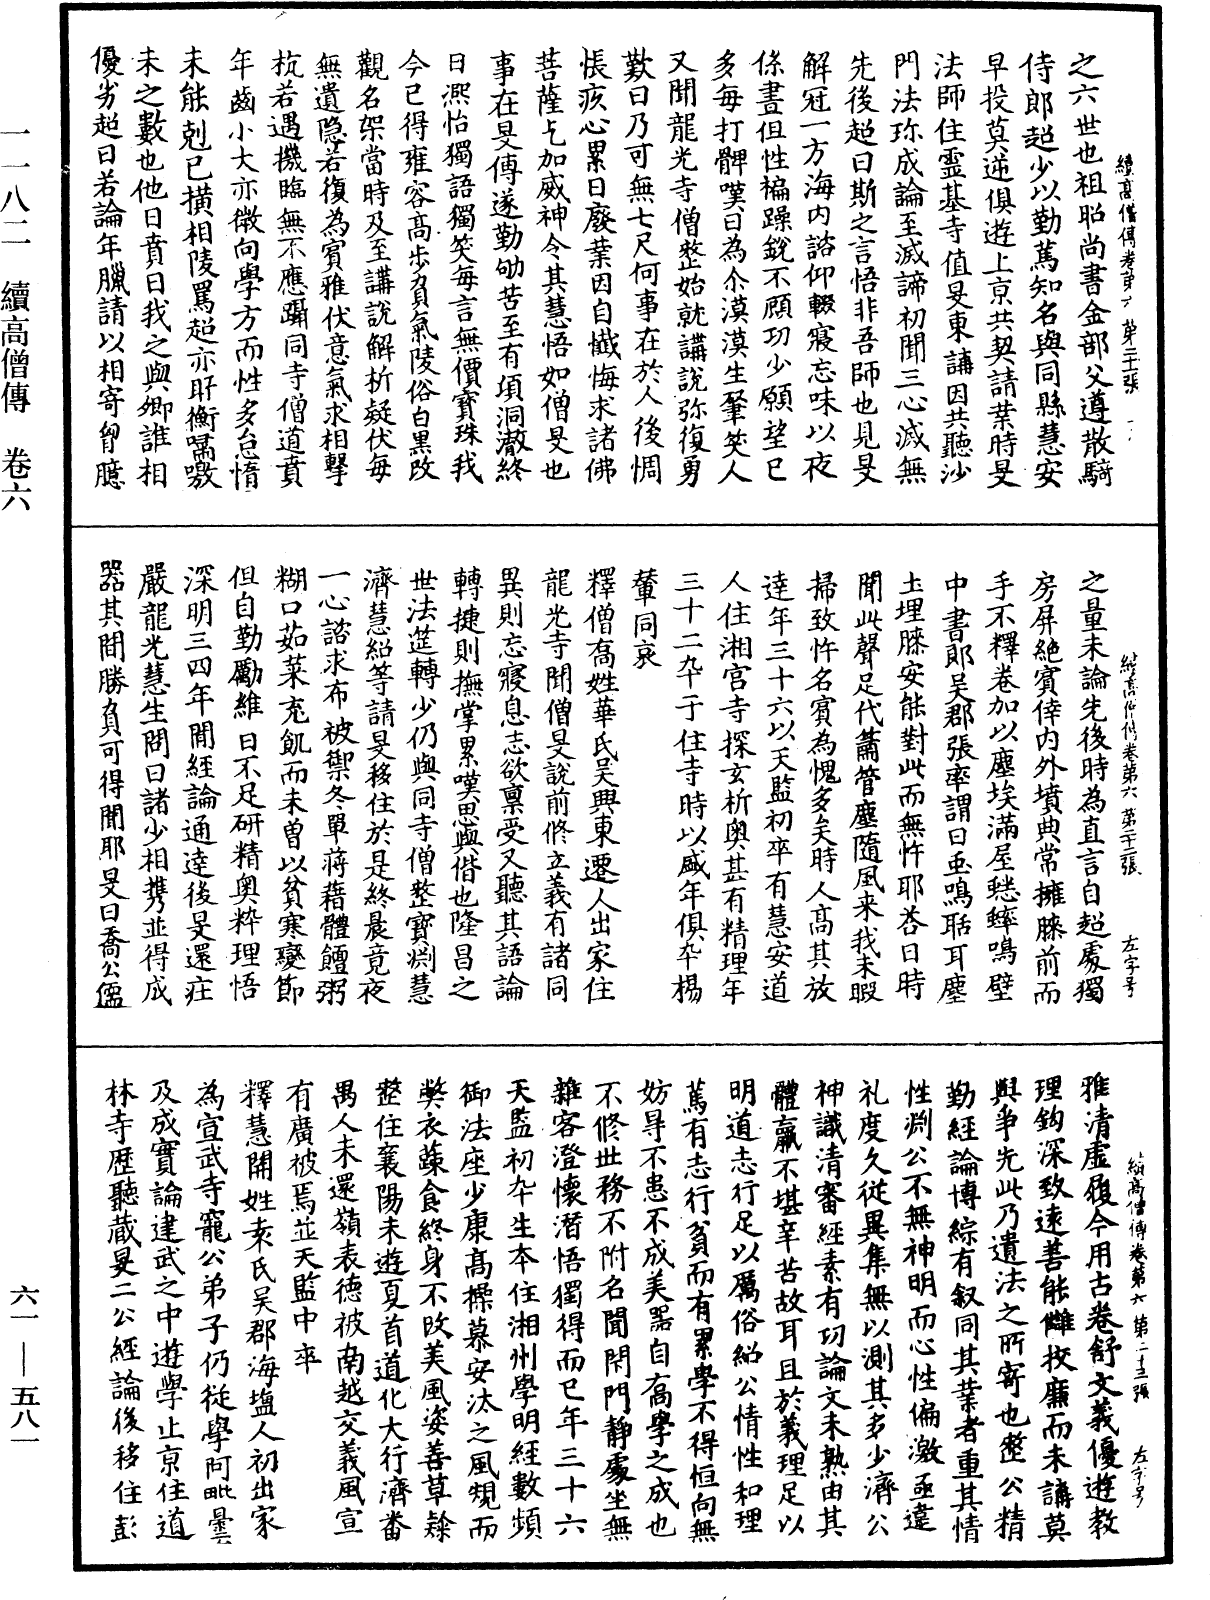 一一八二　續高僧傳　卷六
續高僧傳卷第六　第二十一張
之六世也祖昭尚書金部父遵散騎
侍郎超少以勤篤知名與同縣慧安
早投莫逆俱遊上京共契請業時旻
法師住靈基寺值旻東講因共聽沙
門法珎成論至滅諦初聞三心滅無
先後超曰斯之言悟非吾師也見旻
解冠一方海內諮仰輟寢忘味以夜
係晝但性褊躁銳不顧功少願望已
多每打髀嘆曰為尒漠漠生肈笑人
又聞龍光寺僧整始就講說弥復勇
歎曰乃可無七尺何事在於人後惆
悵疾心累日廢業因自懺悔求諸佛
菩薩乞加威神令其慧悟如僧旻也
事在旻傳遂勤劬苦至有頃洞澈終
日凞怡獨語獨笑每言無價寶珠我
今已得雍容高步負氣陵俗白黑改
觀名架當時及至講說解析疑伏每
無遺隱若復為賓雅伏意氣求相擊
抗若遇機臨無不應躡同寺僧道賁
年齒小大亦微向學方而性多怠惰
未能剋己橫相陵罵超亦盱衡嘱噭
未之數也他日賁曰我之與卿誰相
優劣超曰若論年臘請以相寄胷臆
續高僧傳卷第六　第二十二張　左字号
之量未論先後時為直言自超處獨
房屏絕賓倖內外墳典常擁膝前而
手不釋卷加以塵埃滿屋蟋蟀鳴壁
中書郎吳郡張率謂曰虫鳴聒耳塵
土埋膝安能對此而無忤耶荅曰時
聞此聲足代簫管塵隨風来我未暇
掃致忤名賓為愧多矣時人高其放
達年三十六以天監初卒有慧安道
人住湘宫寺探玄析奧甚有精理年
三十二卒于住寺時以盛年俱卒楊
輦同哀
釋僧喬姓華氏吳興東遷人出家住
龍光寺聞僧旻說前修立義有諸同
異則忘寢息志欲禀受又聽其語論
轉捷則撫掌累嘆思與偕也隆昌之
世法筵轉少仍與同寺僧整寶渊慧
濟慧紹等請旻移住於是終晨竟夜
一心諮求布被禦冬單蔣藉體饘粥
糊口茹菜充飢而未曽以貧寒變節
但自勤勵維日不足研精奧粋理悟
深明三四年間經論通達後旻還莊
嚴龍光慧生問曰諸少相携並得成
器其間勝負可得聞耶旻曰喬公儒
續高僧傳卷第六　第二十三張　左字号
雅清虛履今用古卷舒文義優遊教
理鉤深致遠善能讎挍廉而未講莫
與爭先此乃遺法之所寄也整公精
勤經論博綜有叙同其業者重其情
性渊公不無神明而心性偏激亟違
礼度久從異集無以測其多少濟公
神識清審經素有功論文未熟由其
體羸不堪辛苦故耳且於義理足以
明道志行足以厲俗紹公情性和理
篤有志行貧而有累學不得恒向無
妨㝵不患不成美器自喬學之成也
不修世務不附名聞閑門靜處坐無
雜客澄懷潛悟獨得而已年三十六
天監初卒生本住湘州學明經數頻
御法座少康高操慕安汰之風覬而
獘衣蔬食終身不改美風姿善草隸
整住襄陽未遊夏首道化大行濟番
禺人未還嶺表德被南越交義風宣
有廣被焉並天監中卒
釋慧開姓袁氏吴郡海塩人初出家
為宣武寺寵公弟子仍從學阿毗曇
及成實論建武之中遊學止京住道
林寺歷聽蔵旻二公經論後移住彭
六一—五八一